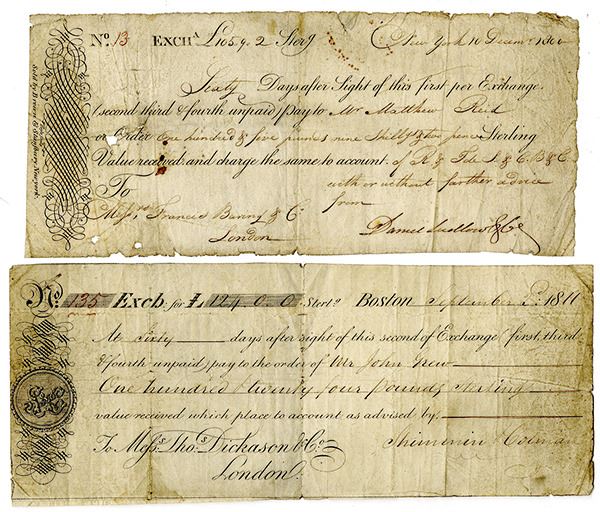 No. 13 EXCHA £105,,9,,2 Sterg New York 10 Decemr
Sixty Days after Sight of this first per Exchange
(second third & fourth unpaid) pay to Mr Matthew Reid
or Order One hundred & five pounds nine Shillgs & two pence Sterling
Value received and charge the same to account of R & S & C B & C
To with or without farther advice
from
Messrs Francis Baring & Co
London Daniel Ludlow & Co
Sold by Brown & Stansbury, New-york.
No. 135 Exch. for £ 124 0 0 Sterlg. Boston September 2d. 1811
At Sixty days after sight of this second of Exchange (first, third
& fourth unpaid) pay to the order of Mr John New
One hundred twenty four pounds Sterling
value received which place to account as advised by,
To Messrs. Thos. Dickason & Co.
London.